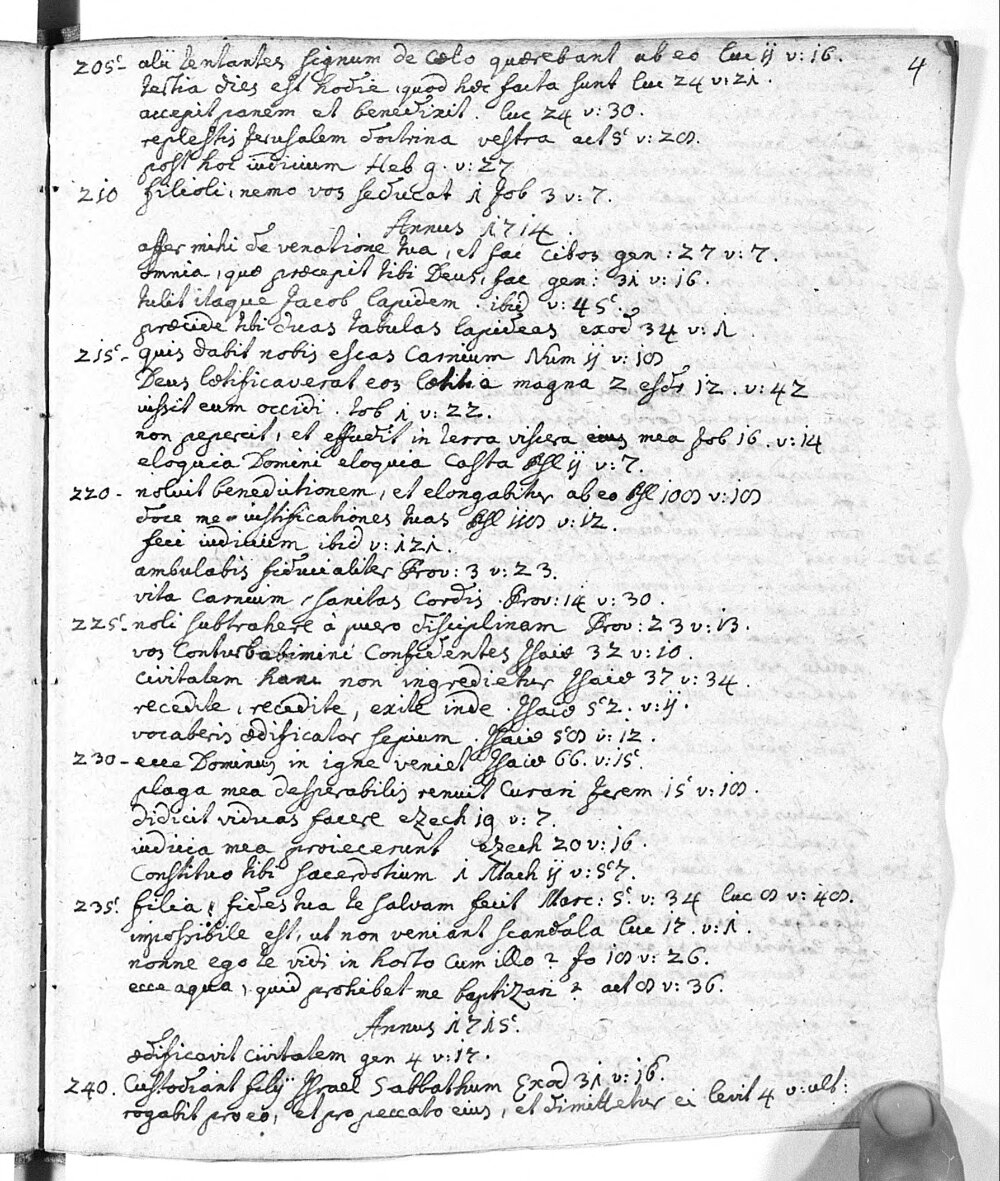 4
205 alii tentantes signum de cœlo quærebant ab eo luc 11 v: 16.
tertia dies est hodie, quod hæc facta sunt luc 24 v: 21.
accepit panem et benedixit. luc 24 v: 30.
replestis Jerusalem doctrina vestra act 5 v: 28.
post hoc iudicium Heb 9. v: 27
210 filioli, nemo vos seducat 1 Job 3 v: 7.
Annus 1714.
affer mihi de venatione tua, et fac cibos gen: 27 v: 7.
omnia, quæ præcepit tibi Deus, fac gen: 31 v: 16.
tulit itaque Jacob lapidem. ibid v: 45.
præcide tibi duas tabulas lapideas exod 34 v: 1
215- quis dabit nobis escas carnium Num 11 v: 18
Deus lætificaverat eos lætitia magna 2 esdr 12. v: 42
iussit eum occidi. tob 1 v: 22.
non pepercit, et effudit in terra viscera eius mea Job 16. v: 14
eloquia Domini eloquia casta Psl 11 v: 7.
220- noluit benedictionem, et elongabitur ab eo Psl 108 v: 18
doce me iustificationes tuas Psl 118 v: 12.
feci iudicium ibid v: 121.
ambulabis fiducialiter Prov: 3 v: 23.
vita carnium, sanitas cordis. Prov: 14 v: 30.
225- noli subtrahere à puero disciplinam Prov: 23 v: 13.
vos conturbabimini confidentes Isaiæ 32 v: 10.
civitatem hanc non ingredietur Isaiæ 37 v: 34.
recedite, recedite, exite inde. Isaiæ 52. v: 11.
vocaberis ædificator sepium. Isaiæ 58 v: 12.
230- ecce Dominus in igne veniet Isaiæ 66. v: 15.
plaga mea desperabilis renuit curari Jerem 15 v: 18.
didicit viduas facere ezech 19 v: 7.
iudicia mea proiecerunt ezech 20 v: 16.
constituo tibi sacerdotium 1 Mach 11 v: 57.
235. filia, fides tua te salvam fecit Marc: 5. v: 34 luc 8 v: 48.
impossibile est, ut non veniant scandala luc 17. v: 1.
nonne ego te vidi in horto cum illo? Jo 18 v: 26.
ecce aqua, quid prohibet me baptizari? act 8 v: 36.
Annus 1715.
ædificavit civitatem gen 4 v: 17.
240. Custodiant filij Israel Sabbathum Exod 31 v: 16.
rogabit pro eo, et pro peccato eius, et dimittetur ei levit 4 v: ult: